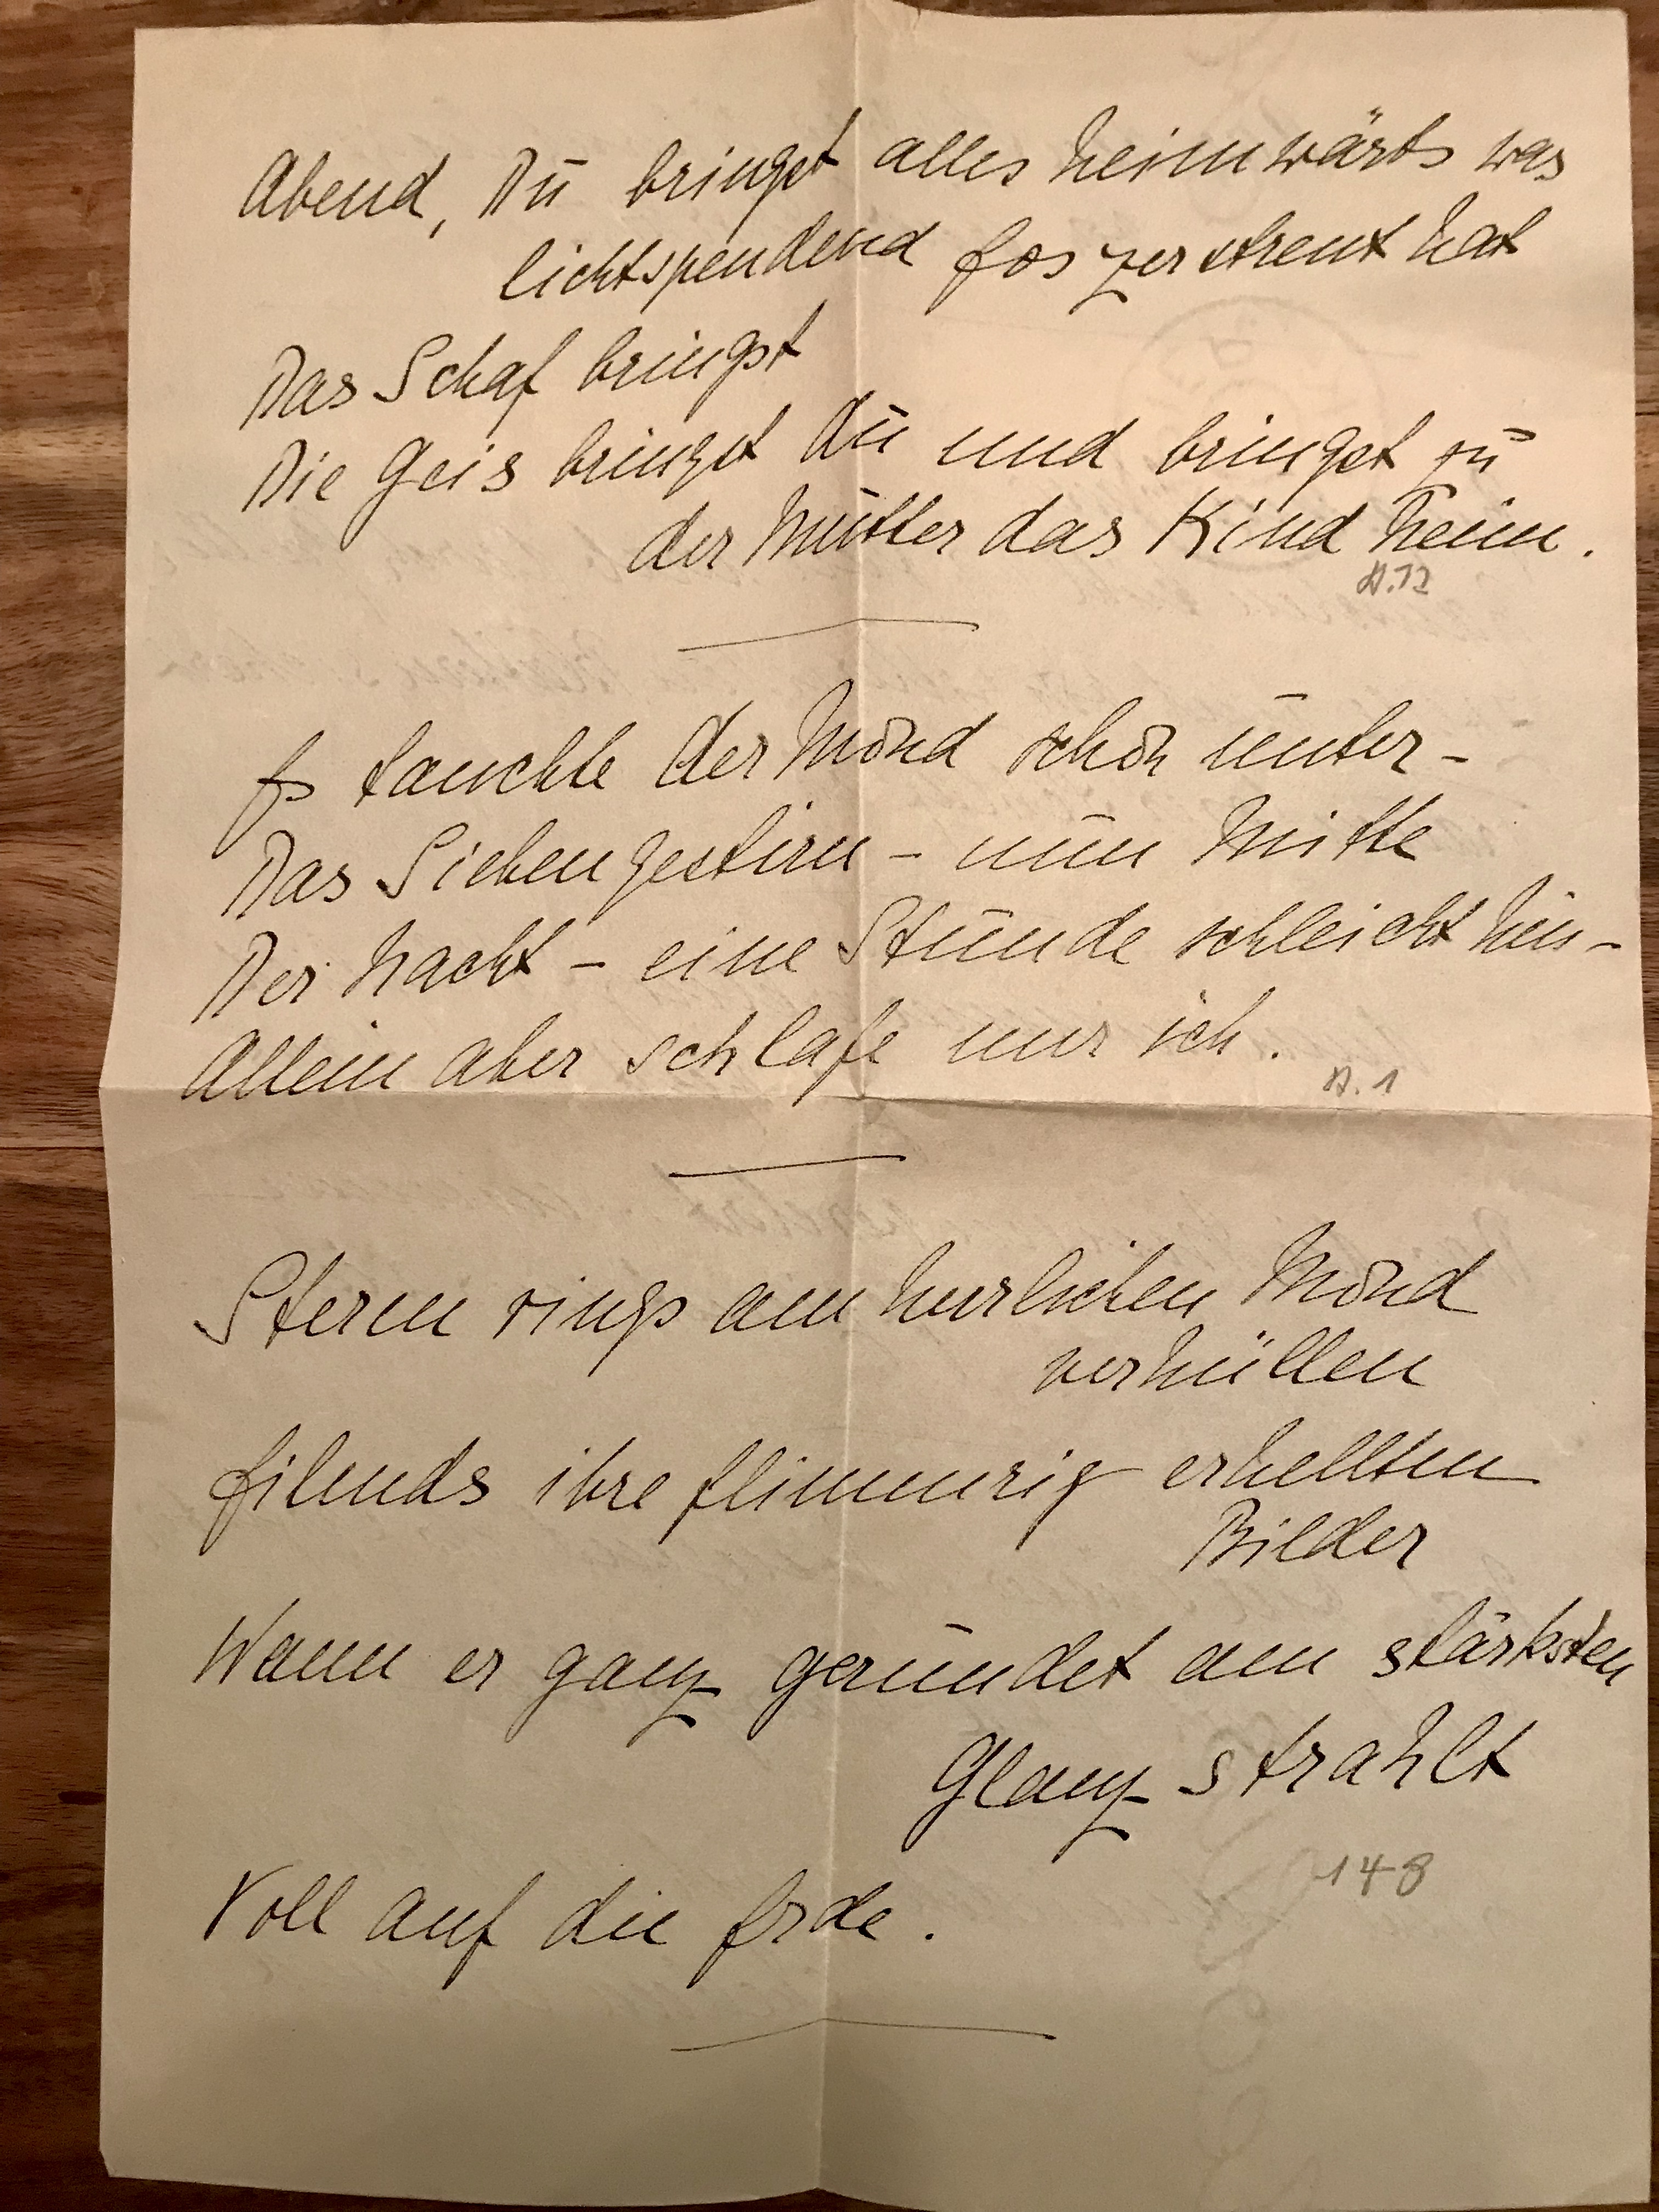 Abend, Du bringst alles heimwärts was
lichtspendend Eos zerstreut hat
Das Schaf bringst
Die Geis bringst du und bringst zu
der Mutter das Kind heim.
A.12
Es tauchte der Mond schon unter -
Das Siebengestirn - nun Mitte
Der Nacht - eine Stunde schleicht hin -
Allein aber schlafe nur ich.
A. 1
Stern rings am herrlichen Mond
verhüllen
Eilends ihre flimmrig erhellten
Bilder
Wann er ganz gerundet am stärksten
Glanz strahlt
148
Voll auf die Erde.